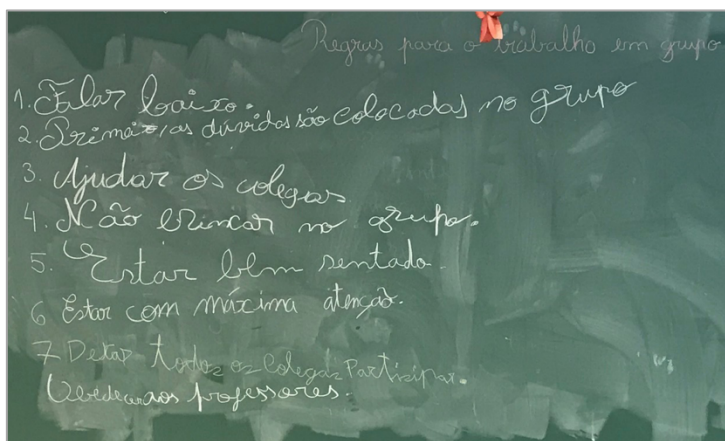 Regras para o trabalho em grupo
1. Falar baixo.
2. Primeiro as dúvidas são colocadas no grupo
3. Ajudar os colegas
4. Não brincar no grupo.
5. Estar bem sentado.
6 Estar com máxima atenção.
7 Deixar todos os colegas Participar.
Obedecer aos professores.